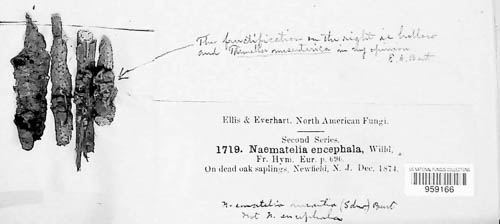 The fructification on the right is hollow
and Tremella mesenterica in my opinion
E. A. Burt
Ellis & Everhart. North American Fungi.
Second Series.
1719. Naematelia encephala, Willd,
Fr. Hym. Eur. p. 696.
On dead oak saplings, Newfield, N. J. Dec. 1874.
US NATIONAL FUNGUS COLLECTIONS
959166
Burt
Not N. encephala